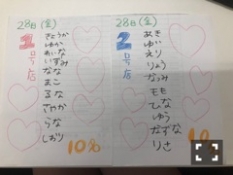 28日(金)
1号店
きょうか
ゆか
れいな
いずみ
なな
まこ
るな
さやか
らな
しおり
10%
28日(金)
2号店
あき
ゆい
えり
りょう
なつみ
もも
ひな
ゆう
なずな
りさ
10